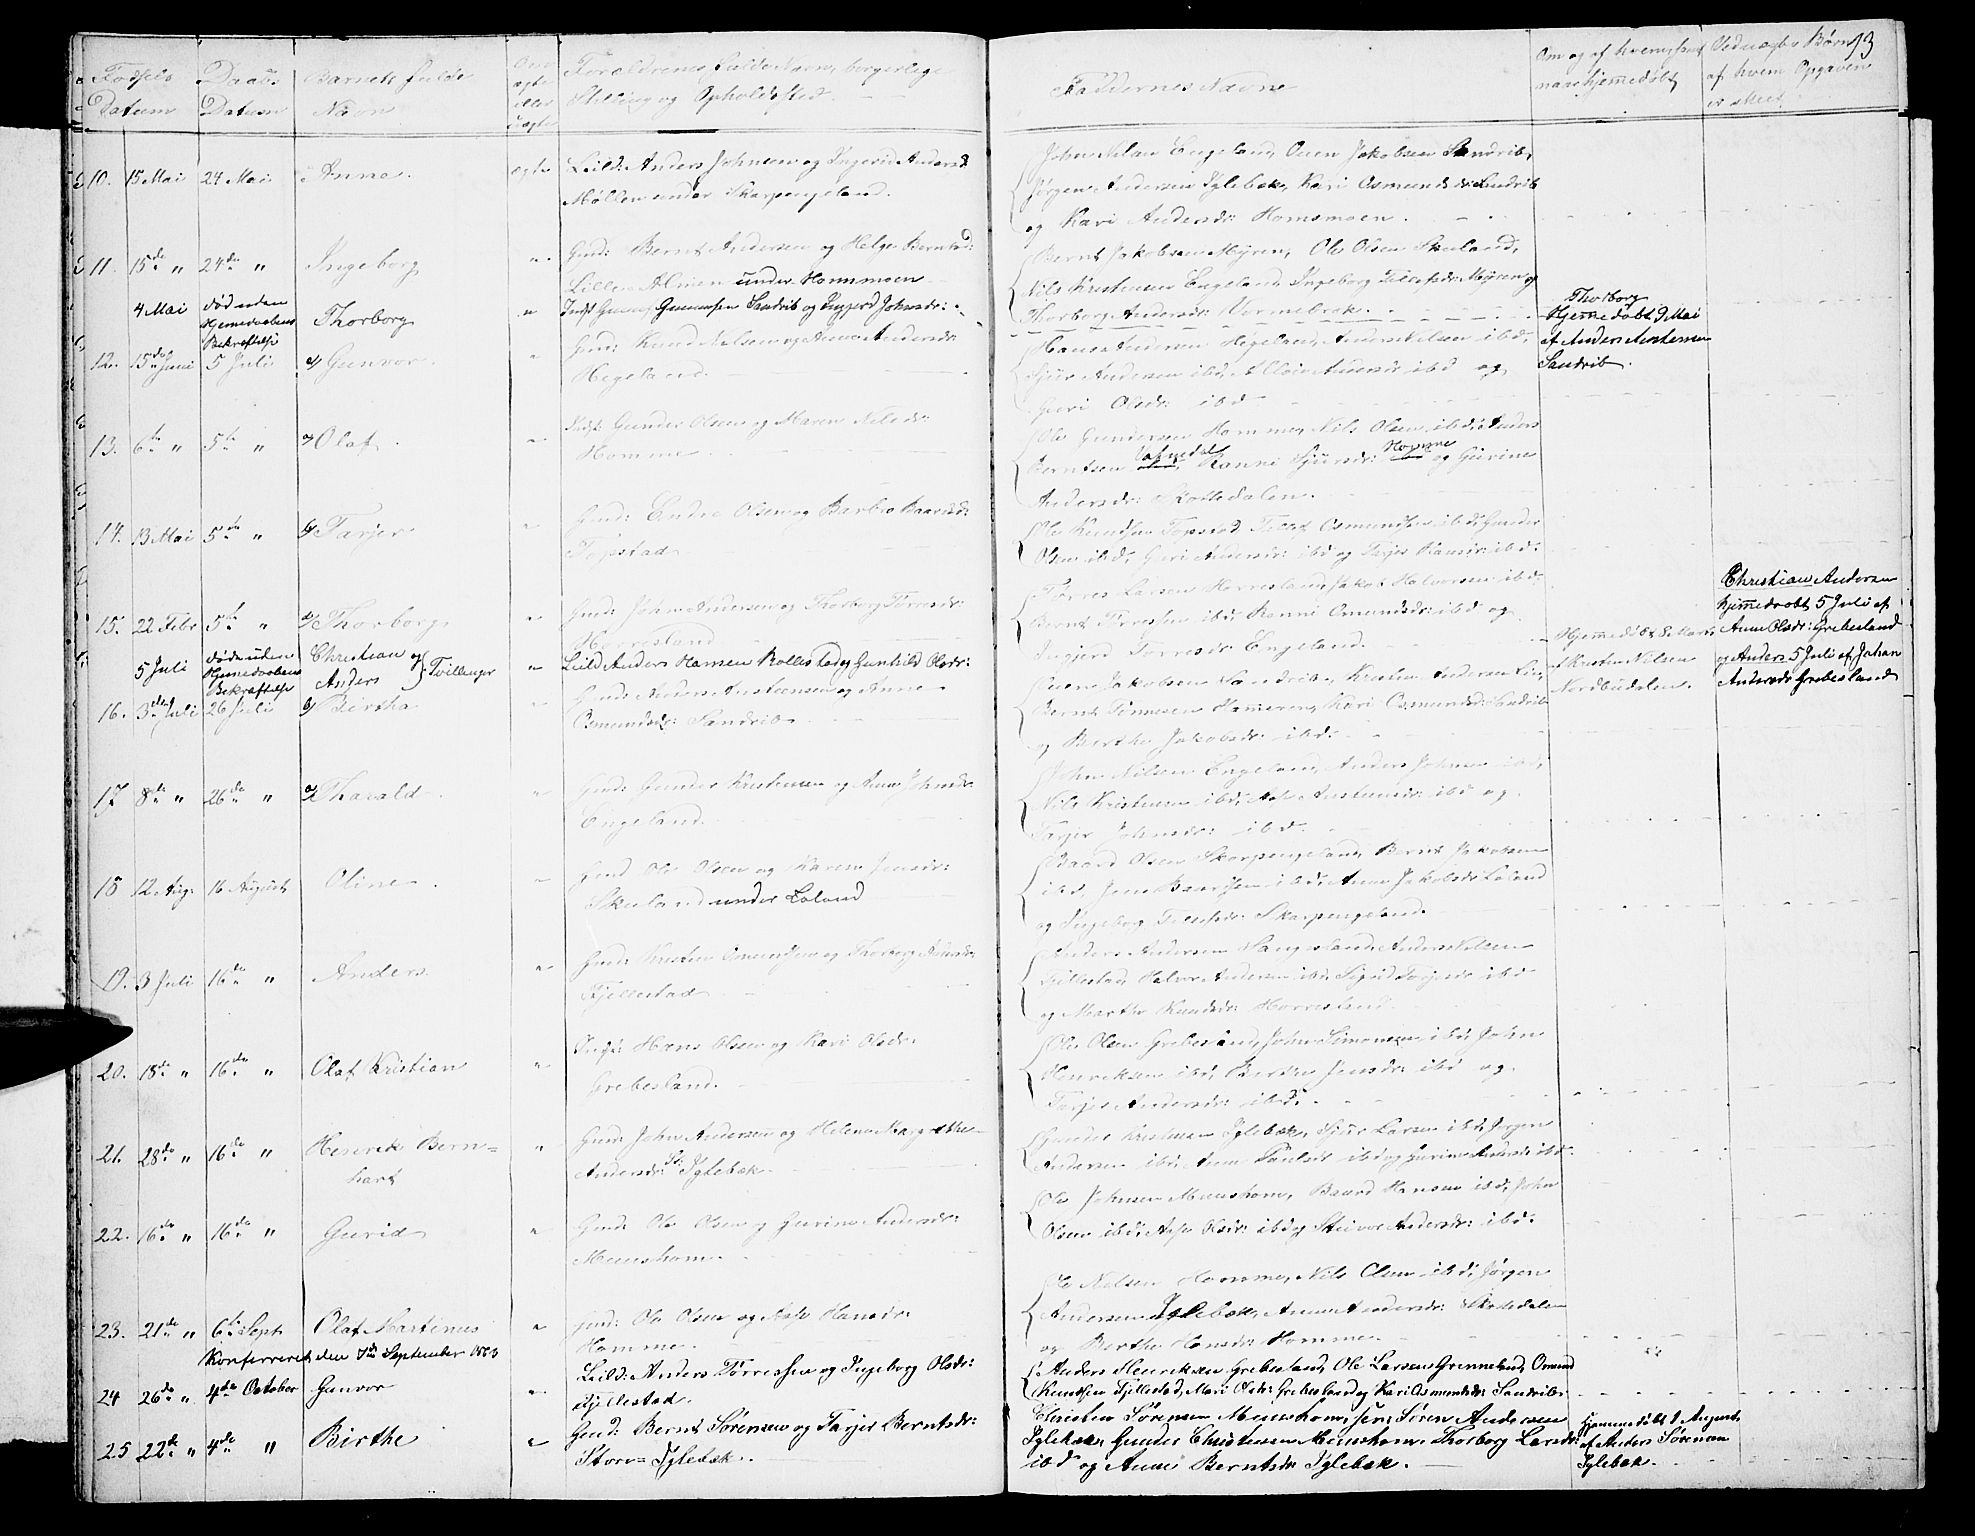 Fødsels Datum
Daabs Datum
Barnets fulde Navn
Forældrenes fulde Navn, borgerlige Stilling og Opholdssted.
Faddernes Navne
Om og af hvem samt naar hjemmedøbt
Ved uægte Børn af hvem Opgaven er skeet.
13
10. 15 Mai 24 Mai Anne. ægte Leild: Anders Johnsen og Ingerid Andersd
Møllen under Skarpengeland.
John Nilsen Engeland, Ouen Jakobsen Sandrib,
Jørgen Andersen Iglebæk, Kari Osmundsdr: Sandrib
og Kari Andersdr: Homsmoen.
11. 15de " 24de " Ingeborg " Gmd: Bernt Andersen og Helge Berntsd:
Lille Almen under Hommoen
Bernt Jakobsen Myren, Ole Olsen Skuland,
Nils Kristensen Engeland, Ingeborg Tellefsdr: Myren og
Thorborg Andersdr: Vormebrok.
4 Mai død uden Hjemmedaabens Bekræftelse Thorborg " Indst Gunuf Gunufsen Sandrib og Ingjerd Johnsdr:
Thorborg
Hjemmedøbt 9 Mai
af Anders Anstensen
Sandrib.
12. 15de Juni 5 Juli Gunvor. " Gmd: Knud Nielsen og Anne Andersdr:
Hegeland
Hans Andersen Hegeland, Anders Nilsen ibd,
Sjur Andersen ibd,
Guri Olsdr: ibd
13. 6te " 5te " Olaf. " Indst Gunder Olsen og Maren Nilsdr:
Homme
Ole Gundersen Homme, Nils Olsen ibd, Anders
Berntsen Vatnedal, Ranni Sjursdr: Homme og Gurine
Andersdr: Skottedalen.
14. 13 Mai 5te " Tarjer " Gmd: Endre Olsen og Barbro Baardsd:
Topstad
Ole Knudsen Topstad, Tellef Osmundsen ibd, Gunder
Olsen ibd, Guri Andersdr: ibd og Tarjer Hansdr: ibd:
15. 22 Febr 5te " Thorborg " Gmd: John Andersen og Thorborg Tørresdr:
Horresland
Tørres Larsen Horresland, Jakob Halvorsen ibd.
Bernt Tørresen ibd, Ranni Osmundsdr: ibd og
Ingjerd Tørresdr: Engeland.
Hjemmedøbt 8 Marts
af Kristen Nilsen
Nordbudalen.
5 Juli døde uden Hjemmedaabens Bekræftelse Christian og Anders } Tvillinger " Leild Anders Hansen Rollestad og Gunhild Olsdr:
Christian Andersen
hjemmedøbt 5 Juli af
Anne Olsdr: Grebesland
og Anders 5 Juli af Johan
Anders: Grebesland
16. 3die Juli 26 Juli Birtha " Gmd: Anders Anstensen og Anne
Osmundsdr: Sandrib
Ouen Jakobsen Sandrib, Kristen Andersen Lie,
Bernt Tønnesen Hameren, Kari Osmundsd: Sandrib
og Berthe Jakobsdr: ibd:
17 8de " 26de " Tharald " Gmd: Gunder Kristensen og Anne Johnsdr
Engeland.
John Nilsen Engeland, Anders Johnsen ibd,
Nils Kristensen ibd, Anstensdr: ibd og
Tarjer Johnsdr: ibd.
18 12 Aug: 16 August Oline. " Gmd Ole Olsen og Karen Jensdr:
Skuland under Loland
Baard Olsen Skarpengeland, Bernt Jakobsen
ibd, Jens Baardsen ibd, Anne Jakobsdr Loland
og Ingeborg Tellefsdr: Skarpengeland.
19. 3 Juli 16de " Anders " Gmd: Kristen Osmundsen og Thorborg Andersdr:
Fjellestad
Anders Andersen Haugesland, Anders Nilsen
Fjellestad, Halvor Andersen ibd, Sigrid Torjesdr ibd
og Marthe Knudsdr: Horresland.
20. 18de " 16de " Olaf Kristian " Indst: Hans Olsen og Kari Olsdr:
Grebesland.
Ole Olsen Grebesland, John Simonsen ibd, John
Henriksen ibd, Berthe Jensdr: ibd og
Tarjer Andersdr: ibd.
21. 28de " 16de " Henrik Bern=
hart " Gmd: John Andersen og Helene Margrethe
Andersdr: St: Iglebæk.
Gunder Kristensen Iglebæk, Sjur Larsen ibd, Jørgen
Andersen ibd, Anne Paulsdr ibd og Gurine Andersdr ibd.
22. 16de " 16de " Gurid " Gmd: Ole Olsen og Gurine Andersdr:
Meushom.
Ole Johnsen Meushom, Baard Hansen ibd, John
Olsen ibd, Aase Olsdr: ibd og Steivor Andersdr: ibd.
23. 21de " 6te Sept Olaf Martinus " Gmd: Ole Olsen og Aase Hansdr:
Homme.
Ole Nelsen Homme, Nils Olsen ibd, Jørgen
Andersen Iglebæk, Anne Andersdr: Skottedalen
og Berthe Hansdr: Homme.
Konfereret den 7de September 1863
24 26de " 4de October Gunvor " Leild: Anders Tørresen og Ingeborg Olsdr:
Fjellestad.
Anders Henriksen Grebesland, Ole Larsen Grennelund, Osmund
Knudsen Fjellestad, Mari Olsdr: Grebesland og Kari Osmundsdr: Sandrib.
25 22de " 4de " Birthe " Gmd: Bernt Sørensen og Tarjer Berntsdr:
Store=Iglebæk.
Christen Sørensen Meushom, Søren Andersen
Iglebæk, Gunder Christensen Meushom, Thorborg Larsdr:
ibd og Anne Berntsdr Iglebæk.
Hjemmedøbt 1 August
af Anders Sørensen
Iglebæk.